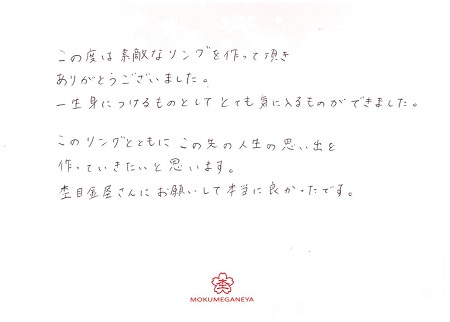 この度は素敵なリングを作って頂き
ありがとうございました。
一生身につけるものとして とても気に入るものができました。
このリングとともに この先の人生の思い出を
作っていきたいと思います。
杢目金屋さんにお願いして本当に良かったです。
杢
MOKUMEGANEYA